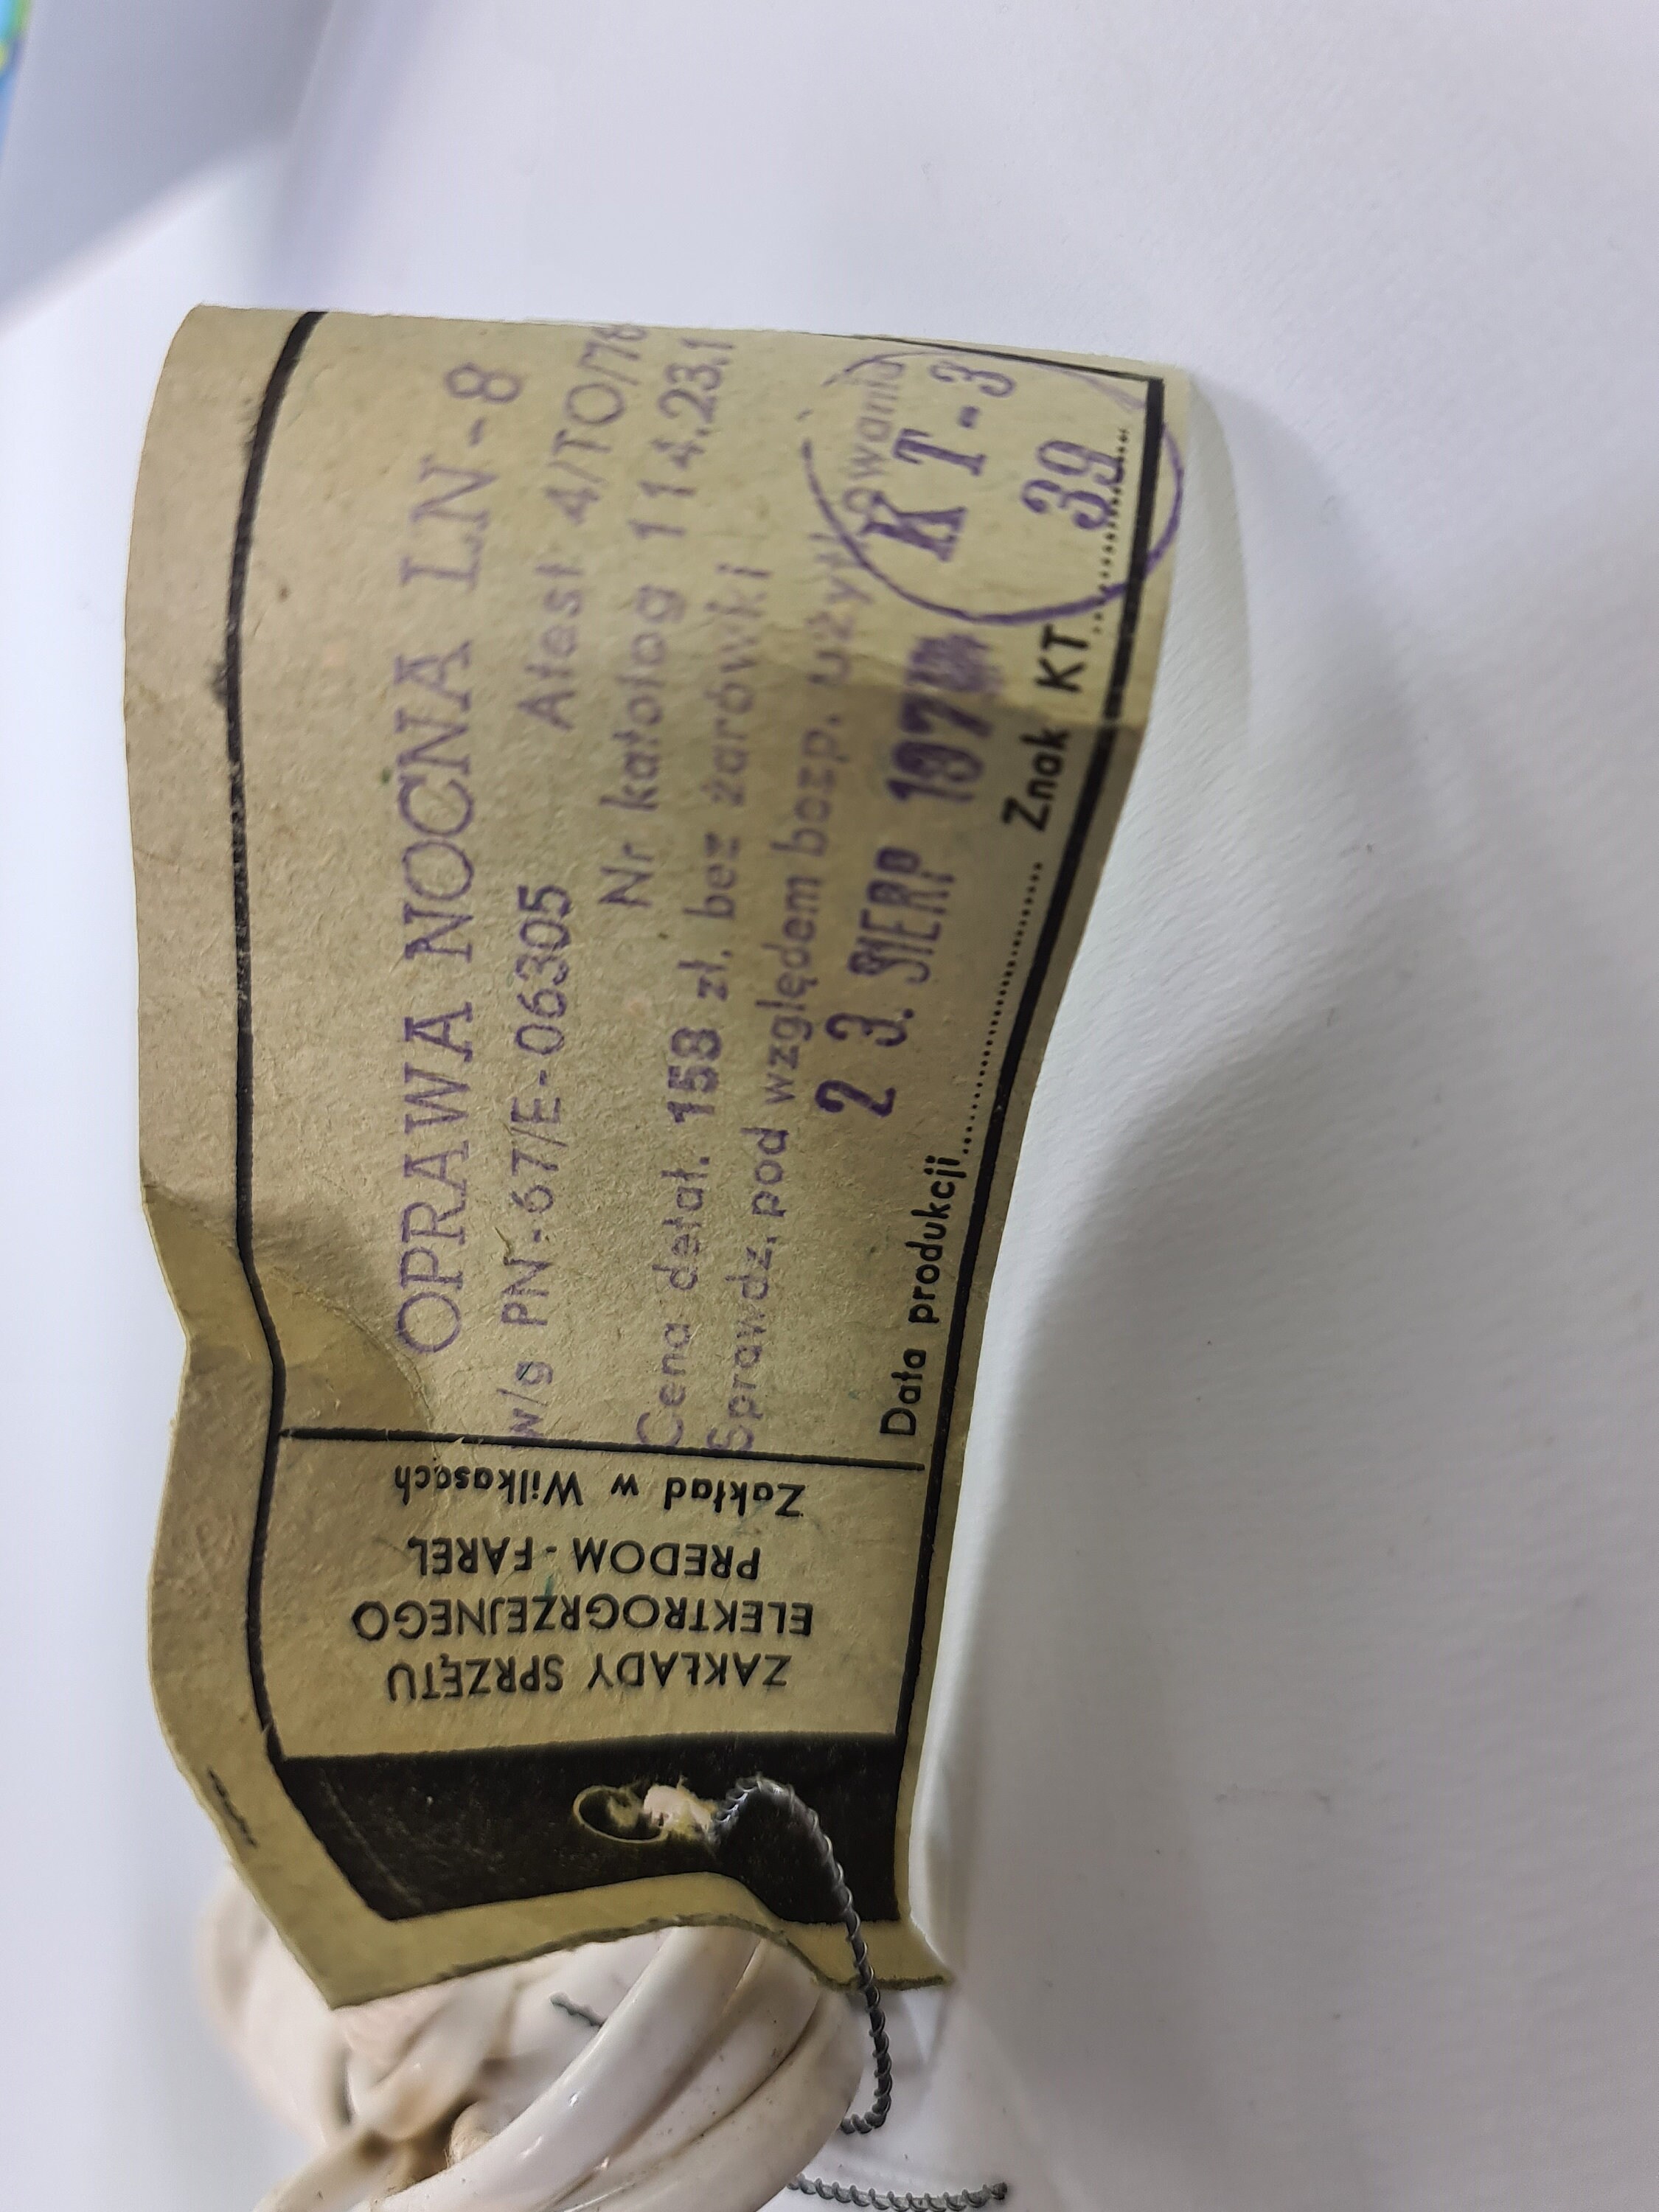 ZAKŁADY SPRZĘTU
ELEKTROGRZEJNEGO
PREDOM - FAREL
Zakład w Wilkasach
OPRAWA NOCNA LN-8
w/g PN-67/E-06305 Atest 4/TO/76
Nr katalog 114.23.1
Cena detal. 158 zł. bez żarówki
Sprawdz. pod względem bezp. użytkowania
23. SIERP
KT-3
39
Data produkcji.................... Znak KT....................